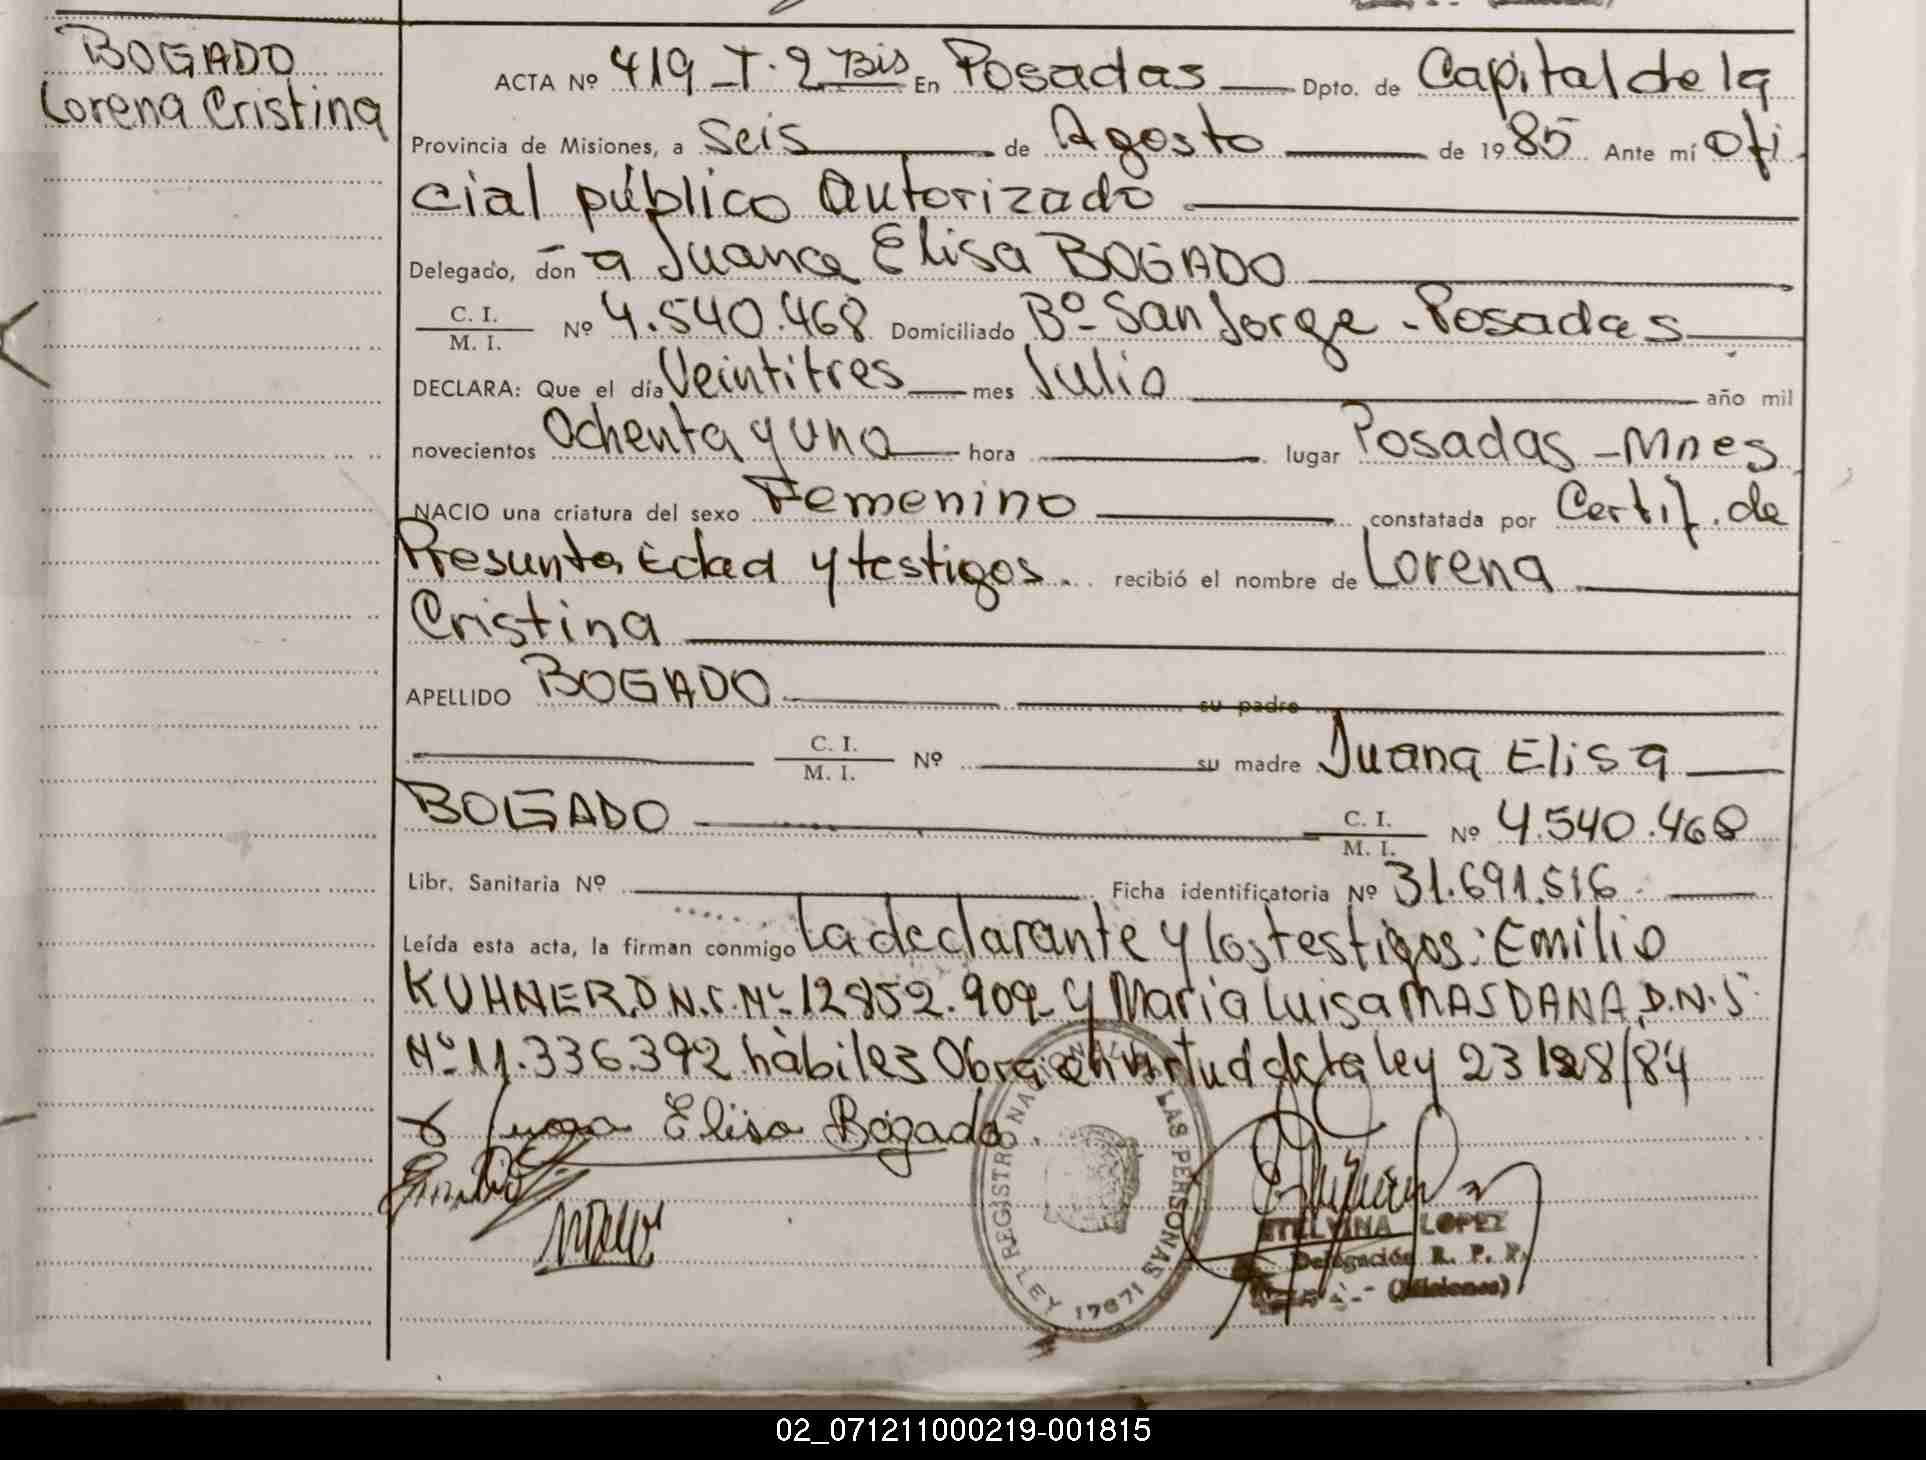 BOGADO
Lorena Cristina
ACTA Nº 419 - T. 2 Bis En Posadas Dpto. de Capital de la
Provincia de Misiones, a Seis de Agosto de 1985 Ante mí Ofi
cial público Autorizado
Delegado, don a Juana Elisa BOGADO
C. I. / M. I. Nº 4.540.468 Domiciliado Bº- San Jorge - Posadas
DECLARA: Que el día Veintitres mes Julio año mil
novecientos Ochenta y uno hora lugar Posadas - Mnes
NACIO una criatura del sexo Femenino constatada por Certif. de
Presunta Edad y testigos. recibió el nombre de Lorena
Cristina
APELLIDO BOGADO su padre
C. I. / M. I. Nº su madre Juana Elisa
BOGADO C. I. / M. I. Nº 4.540.468
Libr. Sanitaria Nº Ficha identificatoria Nº 31.691.516.
Leída esta acta, la firman conmigo La declarante y los testigos: Emilio
KUHNER, D.N.I. Nº 12852.909 y Maria Luisa MASDANA, D.N.I
Nº 11.336.392 hàbiles Obra en virtud de la ley 23128/84
Juana Elisa Bogado
REGISTRO NACIONAL LAS PERSONAS
LEY 17671
ETELVINA LOPEZ
Delegación R. P. P.
(Misiones)
02_071211000219-001815